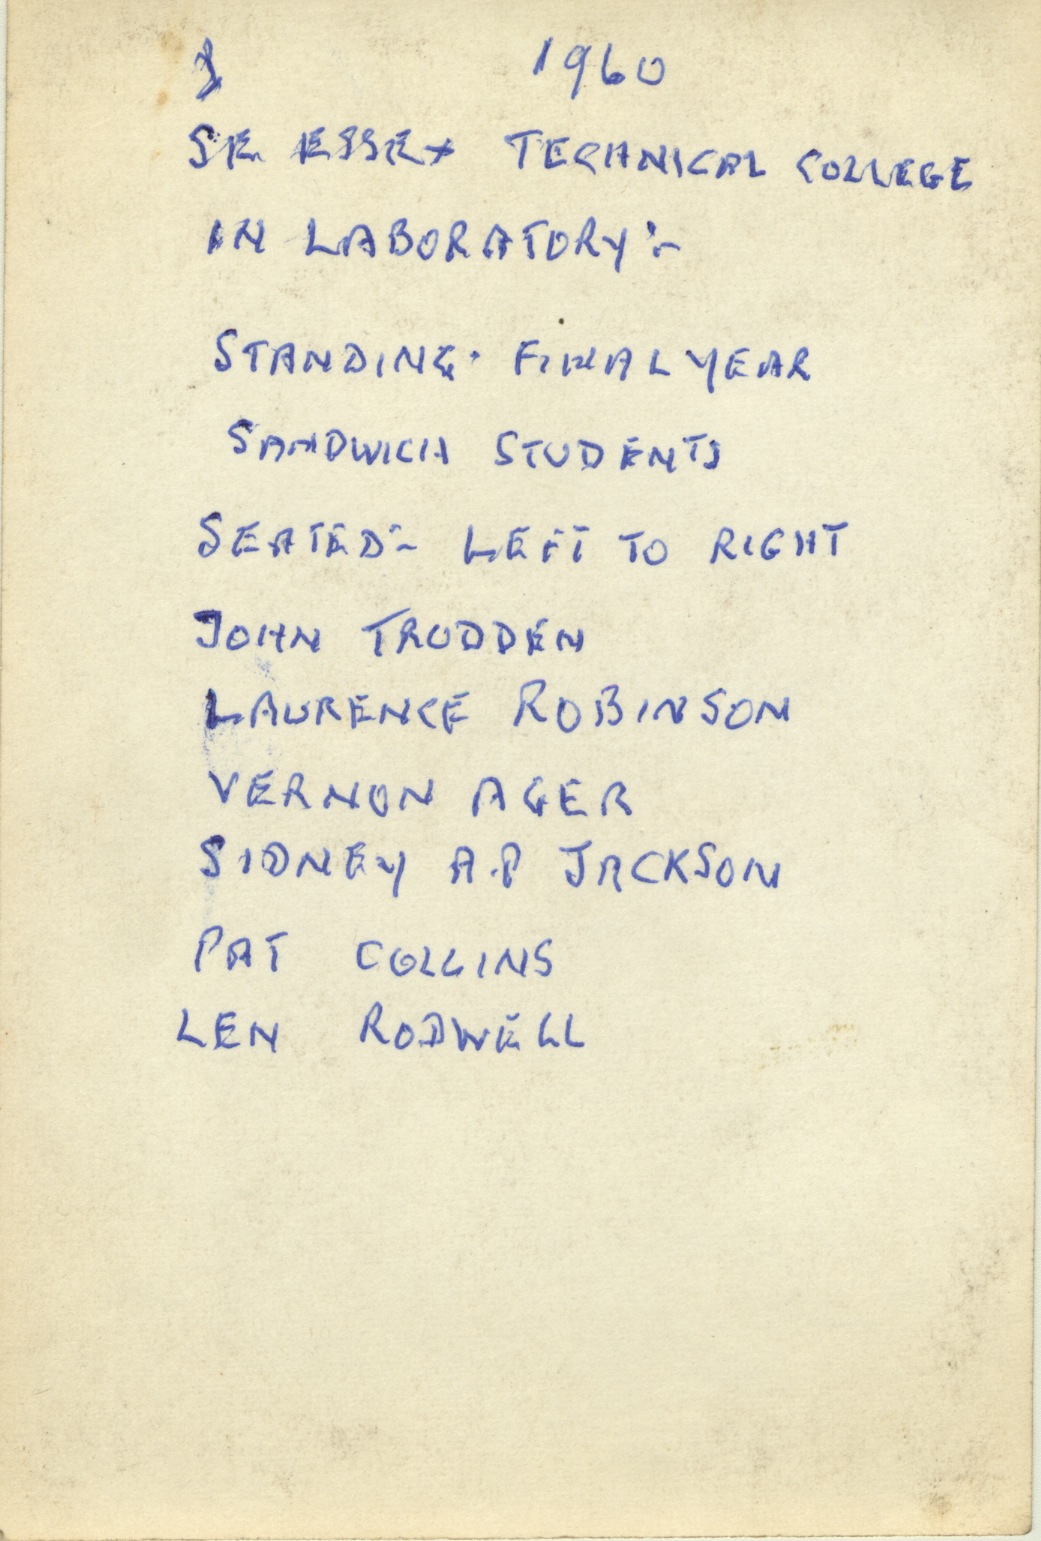 1960
SE ESSEX TECHNICAL COLLEGE
IN LABORATORY:-
STANDING. FINAL YEAR
SANDWICH STUDENTS
SEATED:- LEFT TO RIGHT
JOHN TRUDDEN
LAURENCE ROBINSON
VERNON AGER
SIDNEY A.P JACKSON
PAT COLLINS
LEN RODWELL